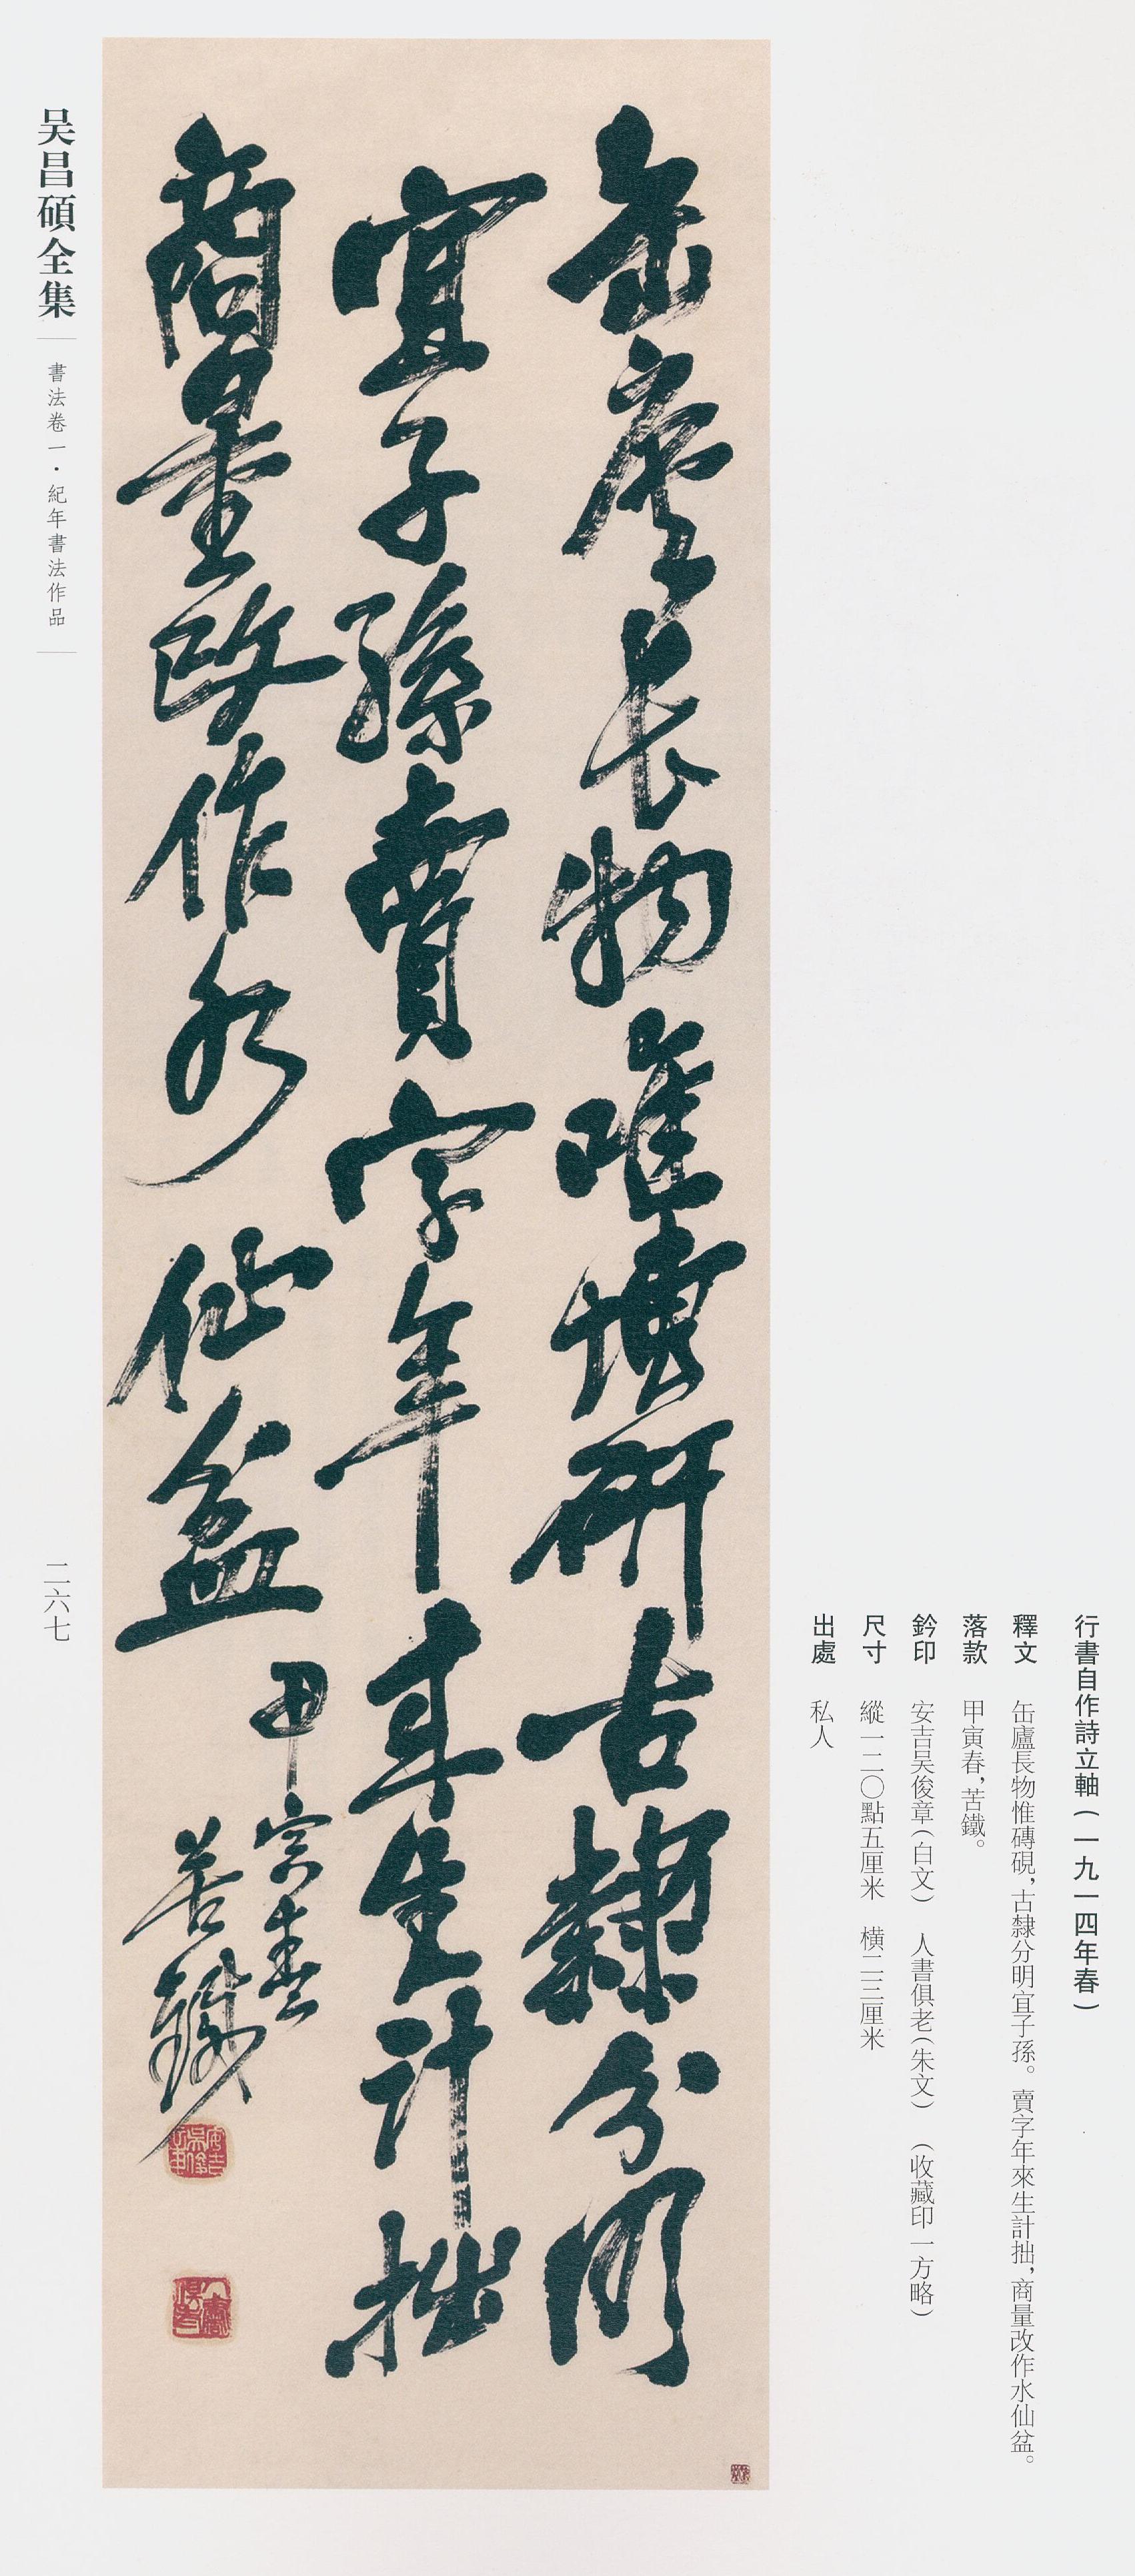 缶廬長物唯塼研古隸分明
宜子孫賣字年來生計拙
商量改作水仙盆
甲寅春
苦鐵
行書自作詩立軸(一九一四年春)
釋文 缶廬長物惟磚硯,古隸分明宜子孫。賣字年來生計拙,商量改作水仙盆。
落款 甲寅春,苦鐵。
鈐印 安吉吴俊章(白文) 人書俱老(朱文) (收藏印一方略)
尺寸 縱一二〇點五厘米 橫三三厘米
出處 私人
吴昌碩全集
書法卷一·紀年書法作品
二六七